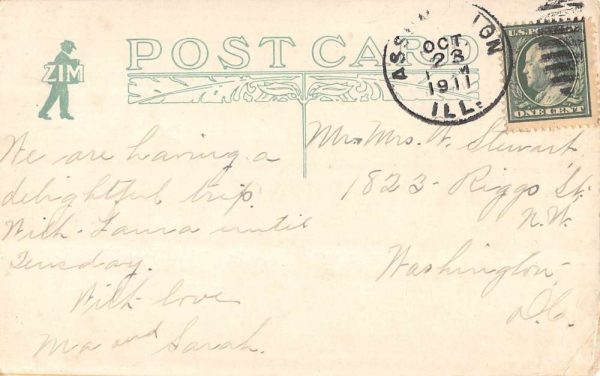 POST CARD
ZIM
ASSUMPTION
OCT
23
M
1911
ILL.
U.S. POSTAGE
ONE CENT
We are having a
delightful trip.
With Laura until
Teusday.
With love
Ma and Sarah.
Mr. Mrs. W. Stewart
1823 - Riggs St.
N.W.
Washington
D.C.